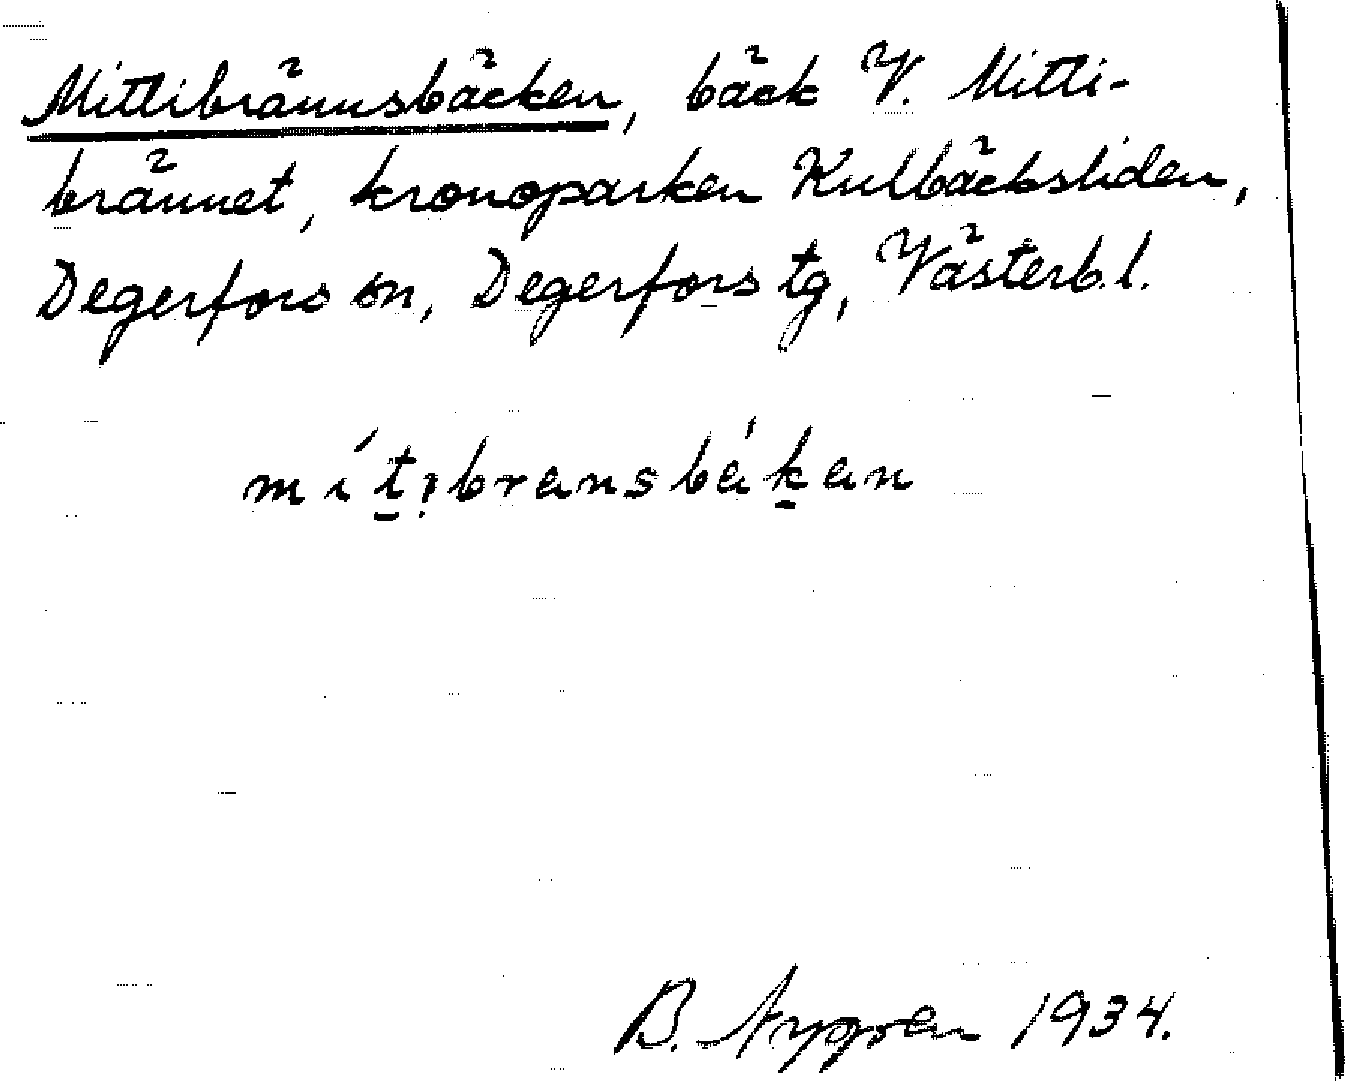 Mittibrännsbäcken, bäck V. Mitti-
brännet, kronoparken Kulbäcksliden,
Degerfors sn, Degerfors tg, Västerb.l.
mít̠ı̣brænsbǽk̠æn
B. Nygren 1934.